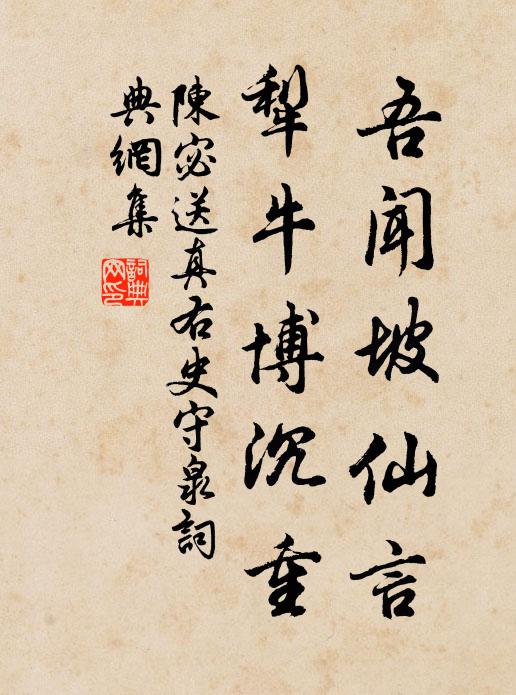 吾聞坡仙言
犁牛博沉重
陳宓送真右史守泉詞
典網集
詞典網印